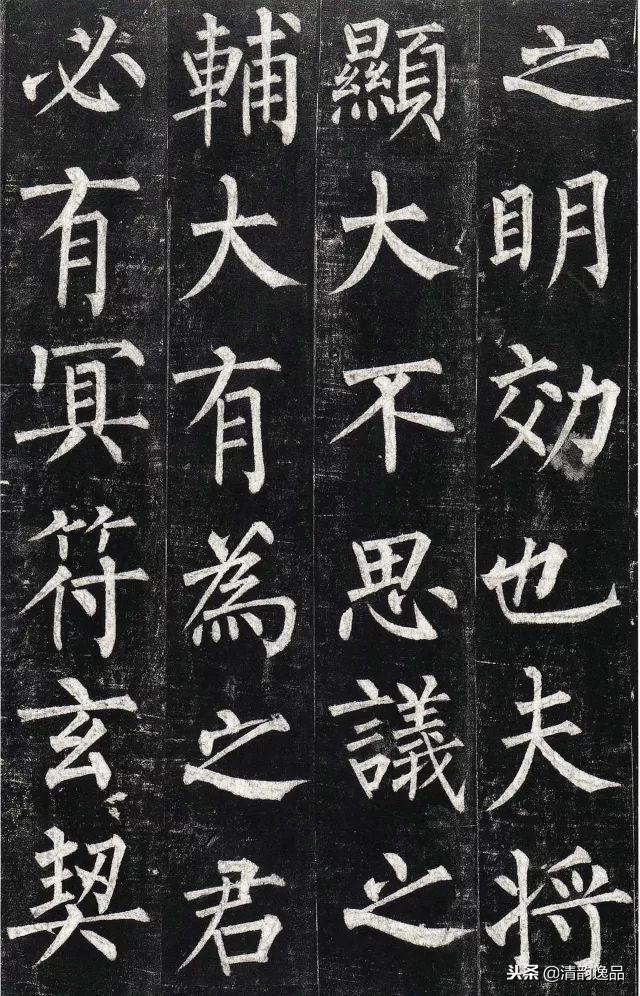 之明効也夫将
顯大不思議之
輔大有為之君
必有冥符玄契
头条@清韵逸品